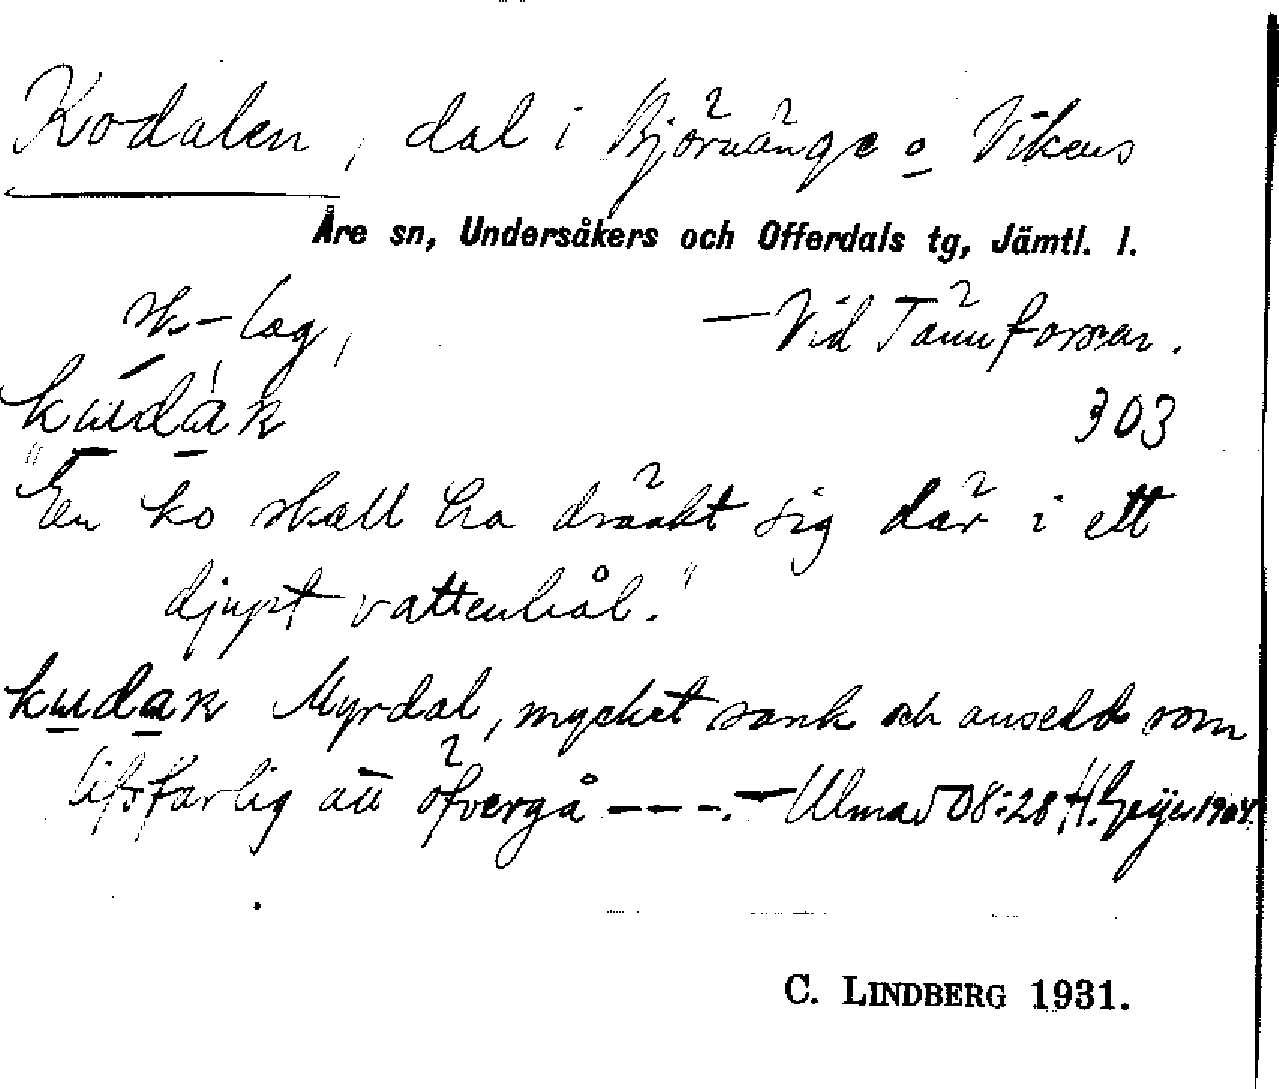 Kodalen, dal i Björnänge o Vikens
Åre sn, Undersåkers och Offerdals tg, Jämtl. l.
sk-lag, — Vid Tännforsen.
303
"En ko skall ha dränkt sig där i ett
djupt vattenhål."
Myrdal, mycket sank och ansedd som
lifsfarlig att öfvergå ---. — Ulma 508:28 H. Geijer 1908.
C. LINDBERG 1931.